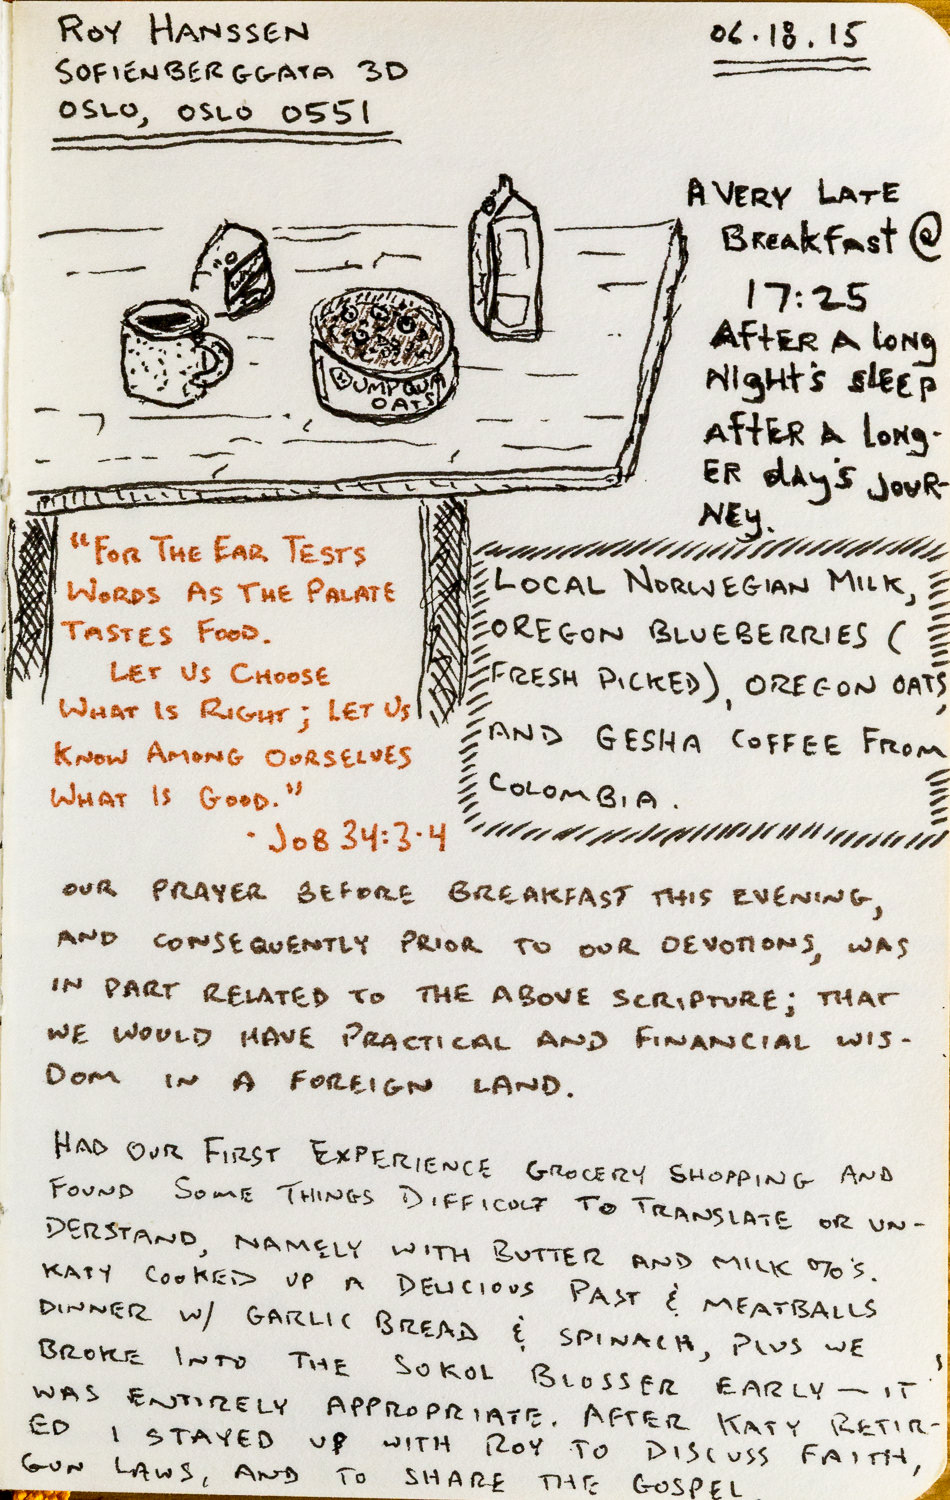 ROY HANSSEN
SOFIENBERGGATA 3D
OSLO, OSLO 0551
06.18.15
A VERY LATE
BREAKFAST @
17:25
AFTER A LONG
NIGHT'S SLEEP
AFTER A LONG-
ER DAY'S JOUR-
NEY.
UMPQUA
OATS
"FOR THE EAR TESTS
WORDS AS THE PALATE
TASTES FOOD.
LET US CHOOSE
WHAT IS RIGHT; LET US
KNOW AMONG OURSELVES
WHAT IS GOOD."
· JOB 34:3-4
LOCAL NORWEGIAN MILK,
OREGON BLUEBERRIES (
FRESH PICKED), OREGON OATS,
AND GESHA COFFEE FROM
COLOMBIA.
OUR PRAYER BEFORE BREAKFAST THIS EVENING,
AND CONSEQUENTLY PRIOR TO OUR DEVOTIONS, WAS
IN PART RELATED TO THE ABOVE SCRIPTURE; THAT
WE WOULD HAVE PRACTICAL AND FINANCIAL WIS-
DOM IN A FOREIGN LAND.
HAD OUR FIRST EXPERIENCE GROCERY SHOPPING AND
FOUND SOME THINGS DIFFICULT TO TRANSLATE OR UN-
DERSTAND, NAMELY WITH BUTTER AND MILK %'S.
KATY COOKED UP A DELICIOUS PAST & MEATBALLS
DINNER W/ GARLIC BREAD & SPINACH, PLUS WE
BROKE INTO THE SOKOL BLOSSER EARLY — IT
WAS ENTIRELY APPROPRIATE. AFTER KATY RETIR-
ED I STAYED UP WITH ROY TO DISCUSS FAITH,
GUN LAWS, AND TO SHARE THE GOSPEL